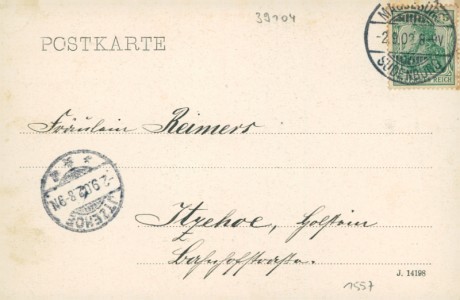 39104
POSTKARTE
MAGDEBURG
-2.9.02.8-9V
SUDENBURG
REICH
Fräulein Reimers
ITZEHOE
-2.9.02.8-9N.
Itzehoe, Holstein
Bahnhofstraße.
J. 14198
1557